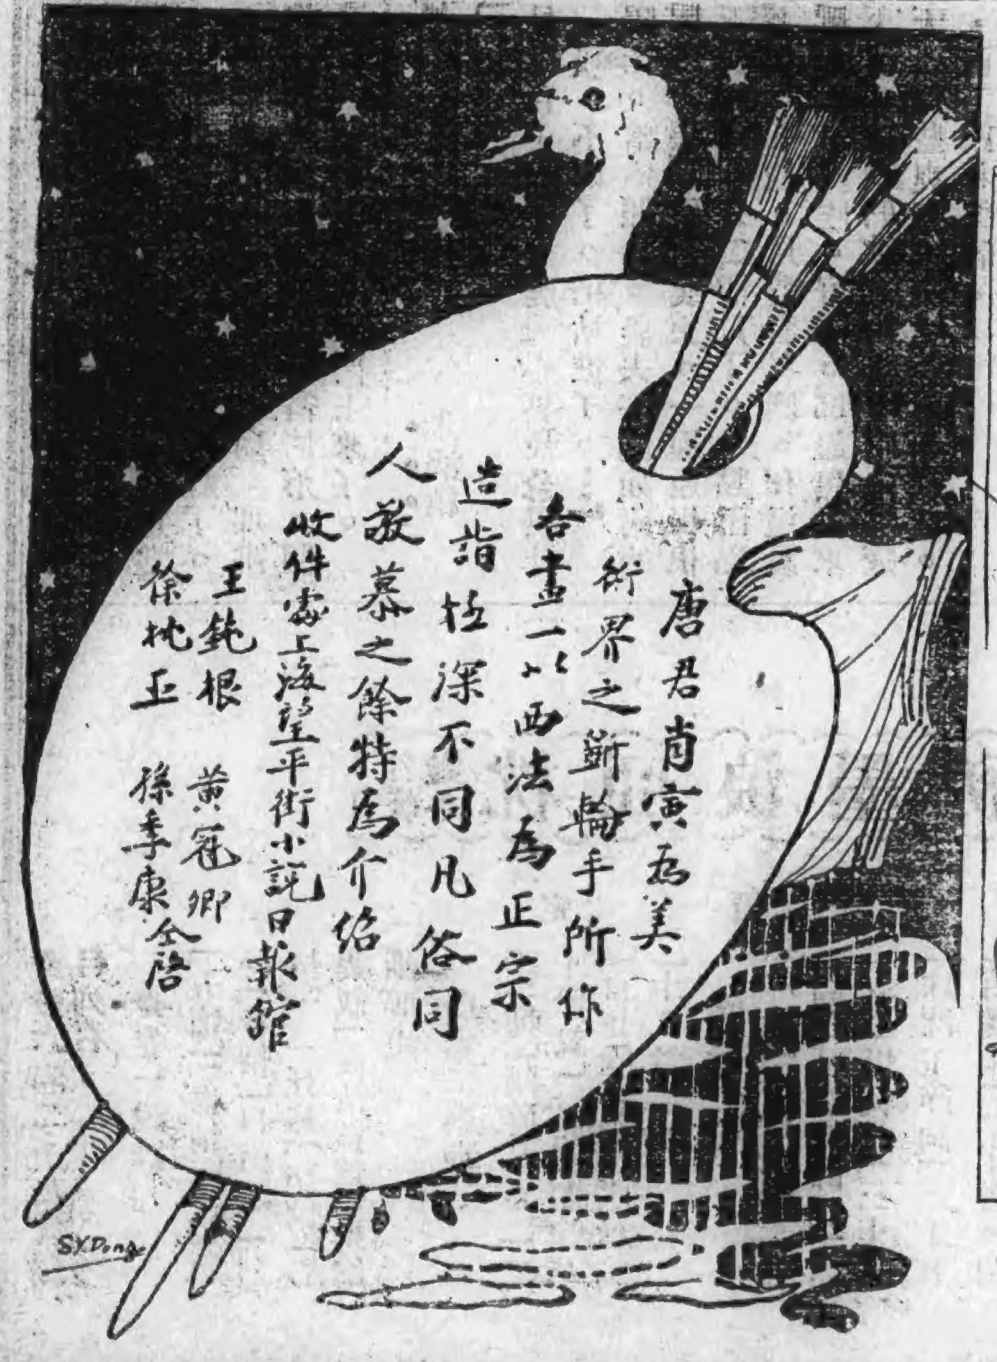 唐君肖寅為美
術界之斲輪手所作
各畫一以西法為正宗
造詣極深不同凡俗同
人敬慕之餘特為介紹
收件處上海望平街小説日報館
王鈍根 黃冠卿
徐枕亞 孫季康仝啓
S.Y.Dong